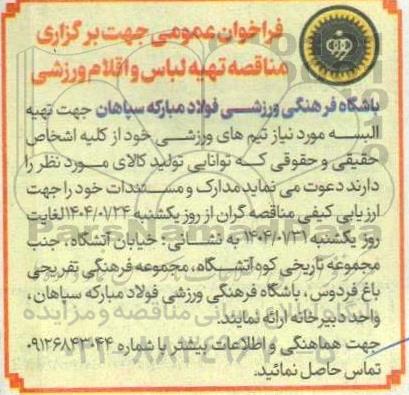 فراخوان عمومی جهت برگزاری
مناقصه تهیه لباس و اقلام ورزشی
باشگاه فرهنگی ورزشی فولاد مبارکه سپاهان جهت تهیه
البسه مورد نیاز تیم های ورزشی خود از کلیه اشخاص
حقیقی و حقوقی که توانایی تولید کالای مورد نظر را
دارند دعوت می نماید مدارک و مستندات خود را جهت
ارزیابی کیفی مناقصه گران از روز یکشنبه ۱۴۰۴/۰۷/۲۴ لغایت
روز یکشنبه ۱۴۰۴/۰۷/۳۱ به نشانی: خیابان آتشگاه، جنب
مجموعه تاریخی کوه آتشگاه، مجموعه فرهنگی تفریحی
باغ فردوس، باشگاه فرهنگی ورزشی فولاد مبارکه سپاهان،
واحد دبیرخانه ارائه نمایند.
جهت هماهنگی و اطلاعات بیشتر با شماره ۰۹۱۲۶۸۴۳۰۴۴
تماس حاصل نمائید.